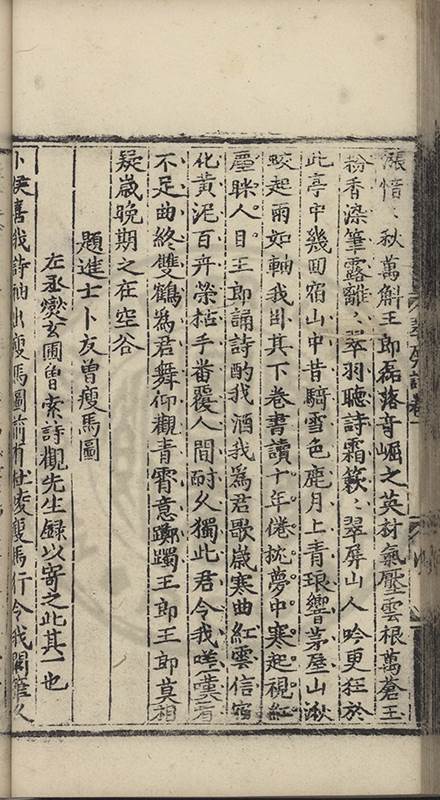 漲愔〻秋萬斛王郎磊落奇崛之英材氣壓雲根萬蒼玉
粉香染筆露離〻翠羽聽詩霜簌〻翠屏山人吟更狂於
此亭中幾囬宿山中昔騎雪色鹿月上青琅響茅屋山湫
蛟起雨如軸我卧其下巻書讀十年倦枕夢中寒起視紅
塵眯人目王郎誦詩酌我酒我爲君歌歲寒曲紅雲信宿
化黃泥百卉榮枯手番覆人間耐久獨此君令我嗟
不足曲終雙鶴爲君舞仰觀青霄意躑躅王郎王郎莫相
疑歲晚期之在空谷
題進士卜友曾瘦馬圖
左丞爕玄圃曽索詩觀先生録以寄之此其一也
卜侯喜我詩袖出瘦馬圖前有杜陵瘦馬行令我閣筆久